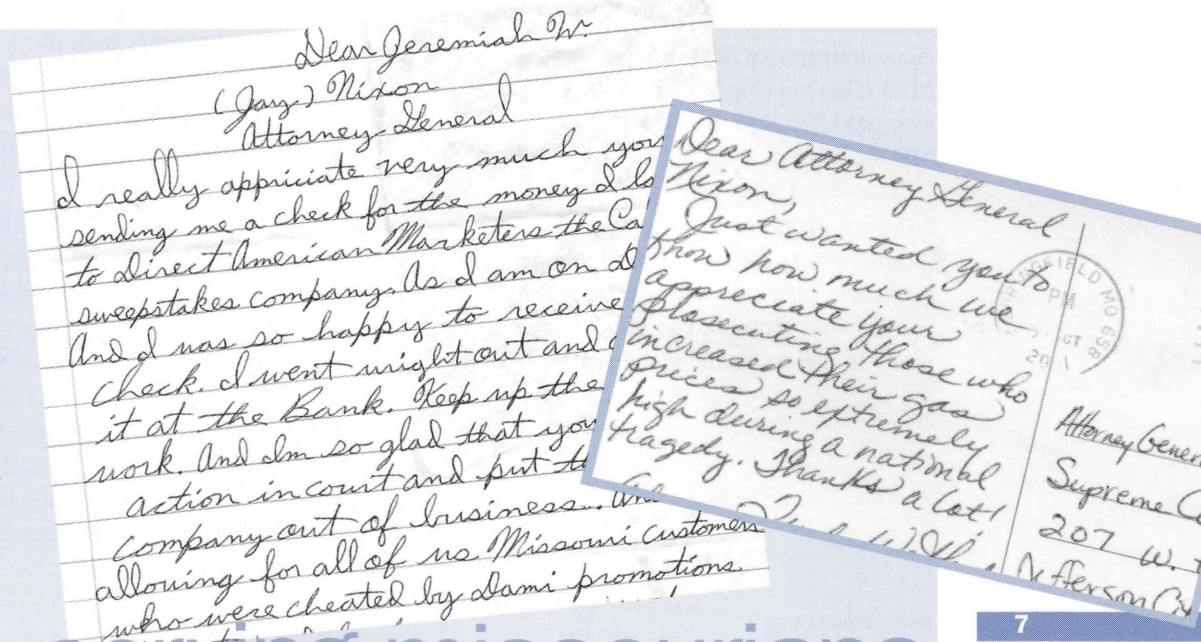 Dear Jeremiah W.
(Jay) Nixon
Attorney General
I really appriciate very much you
sending me a check for the money I
to Direct American Marketers the
sweepstakes company. As I am on
And I was so happy to receive
check. I went wright out and
it at the Bank. Keep up the
work. And Im so glad that you
action in court and put
company out of business.
allowing for all of us Missouri customers
who were cheated by Dami promotions.
Dear Attorney General
Nixon,
Just wanted you to
know how much we
appreciate your
Prosecuting those who
increased their gas
prices so extremely
high during a national
tragedy. Thanks a lot!
MO 658
PM
Attorney
Supreme
207 W.
Jefferson
serving missourians
7